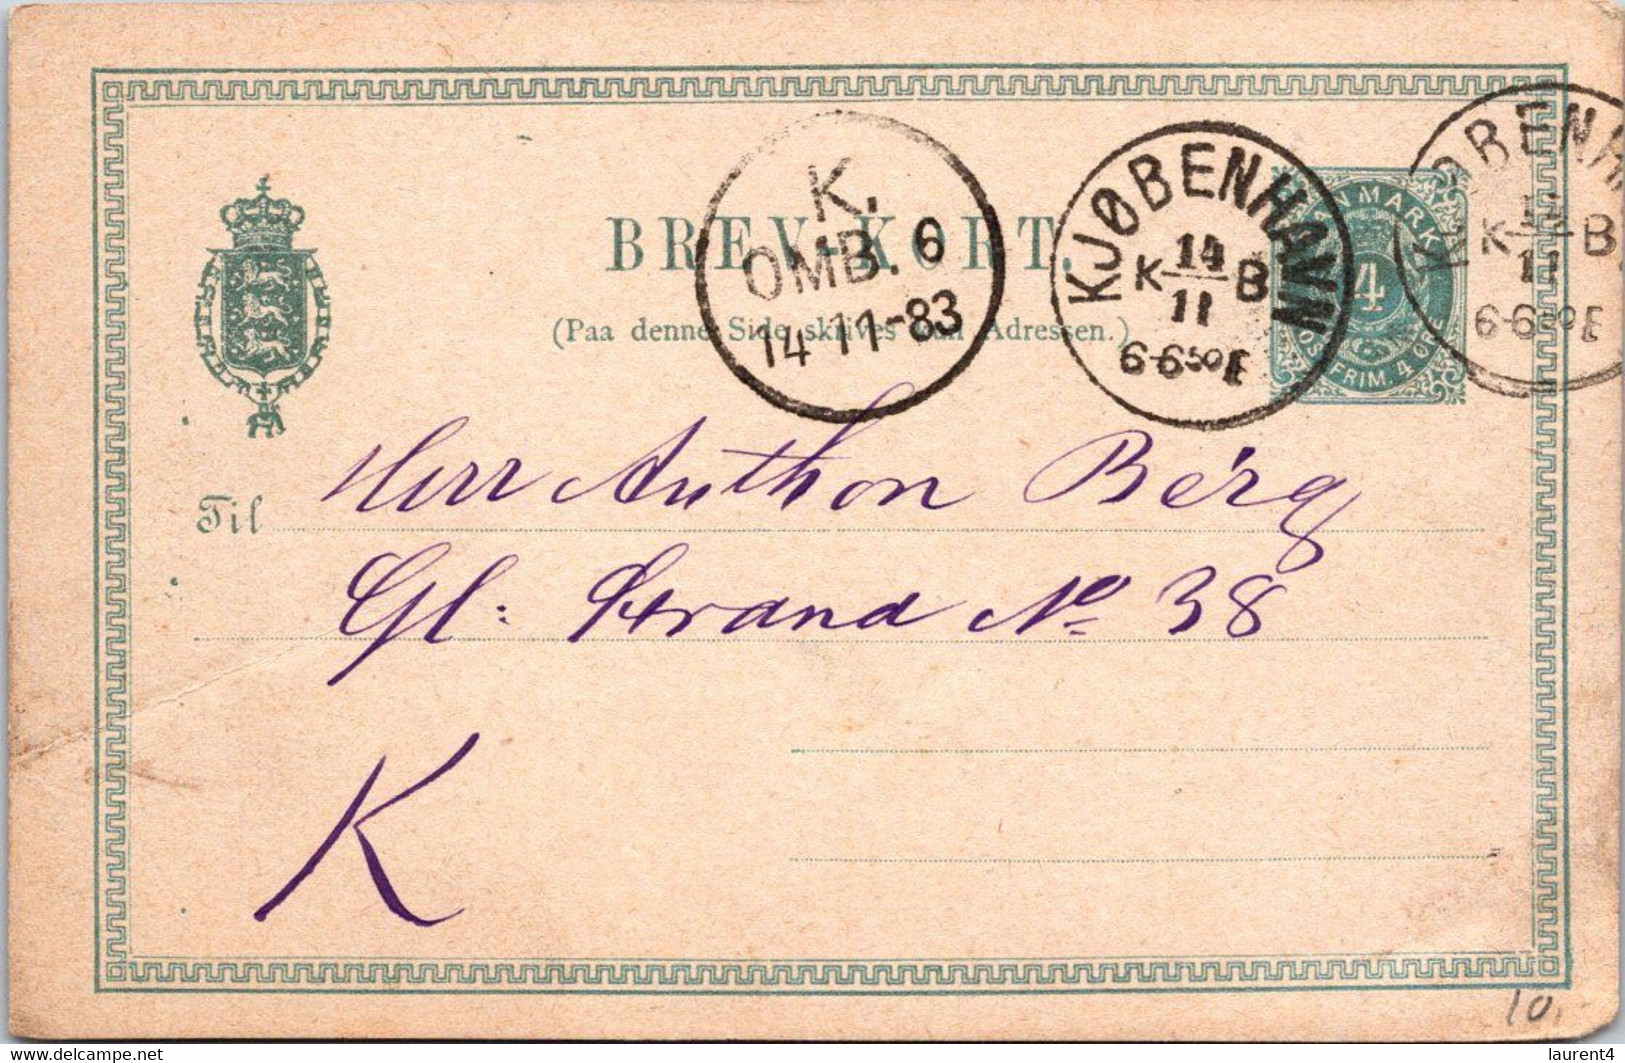 BREV-KORT.
(Paa denne Side skrives kun Adressen.)
K.
OMB. 6
14 11-83
KJØBENHAVN
K 14 B
11
6-6⁵⁰E
DANMARK
4
POSTFRIM. 4 ØRE
KJØBENH
K 14 B
11
6-6⁵⁰E
Til Herr Anthon Berg
Gl: Strand Nº 38
K
10.
laurent4